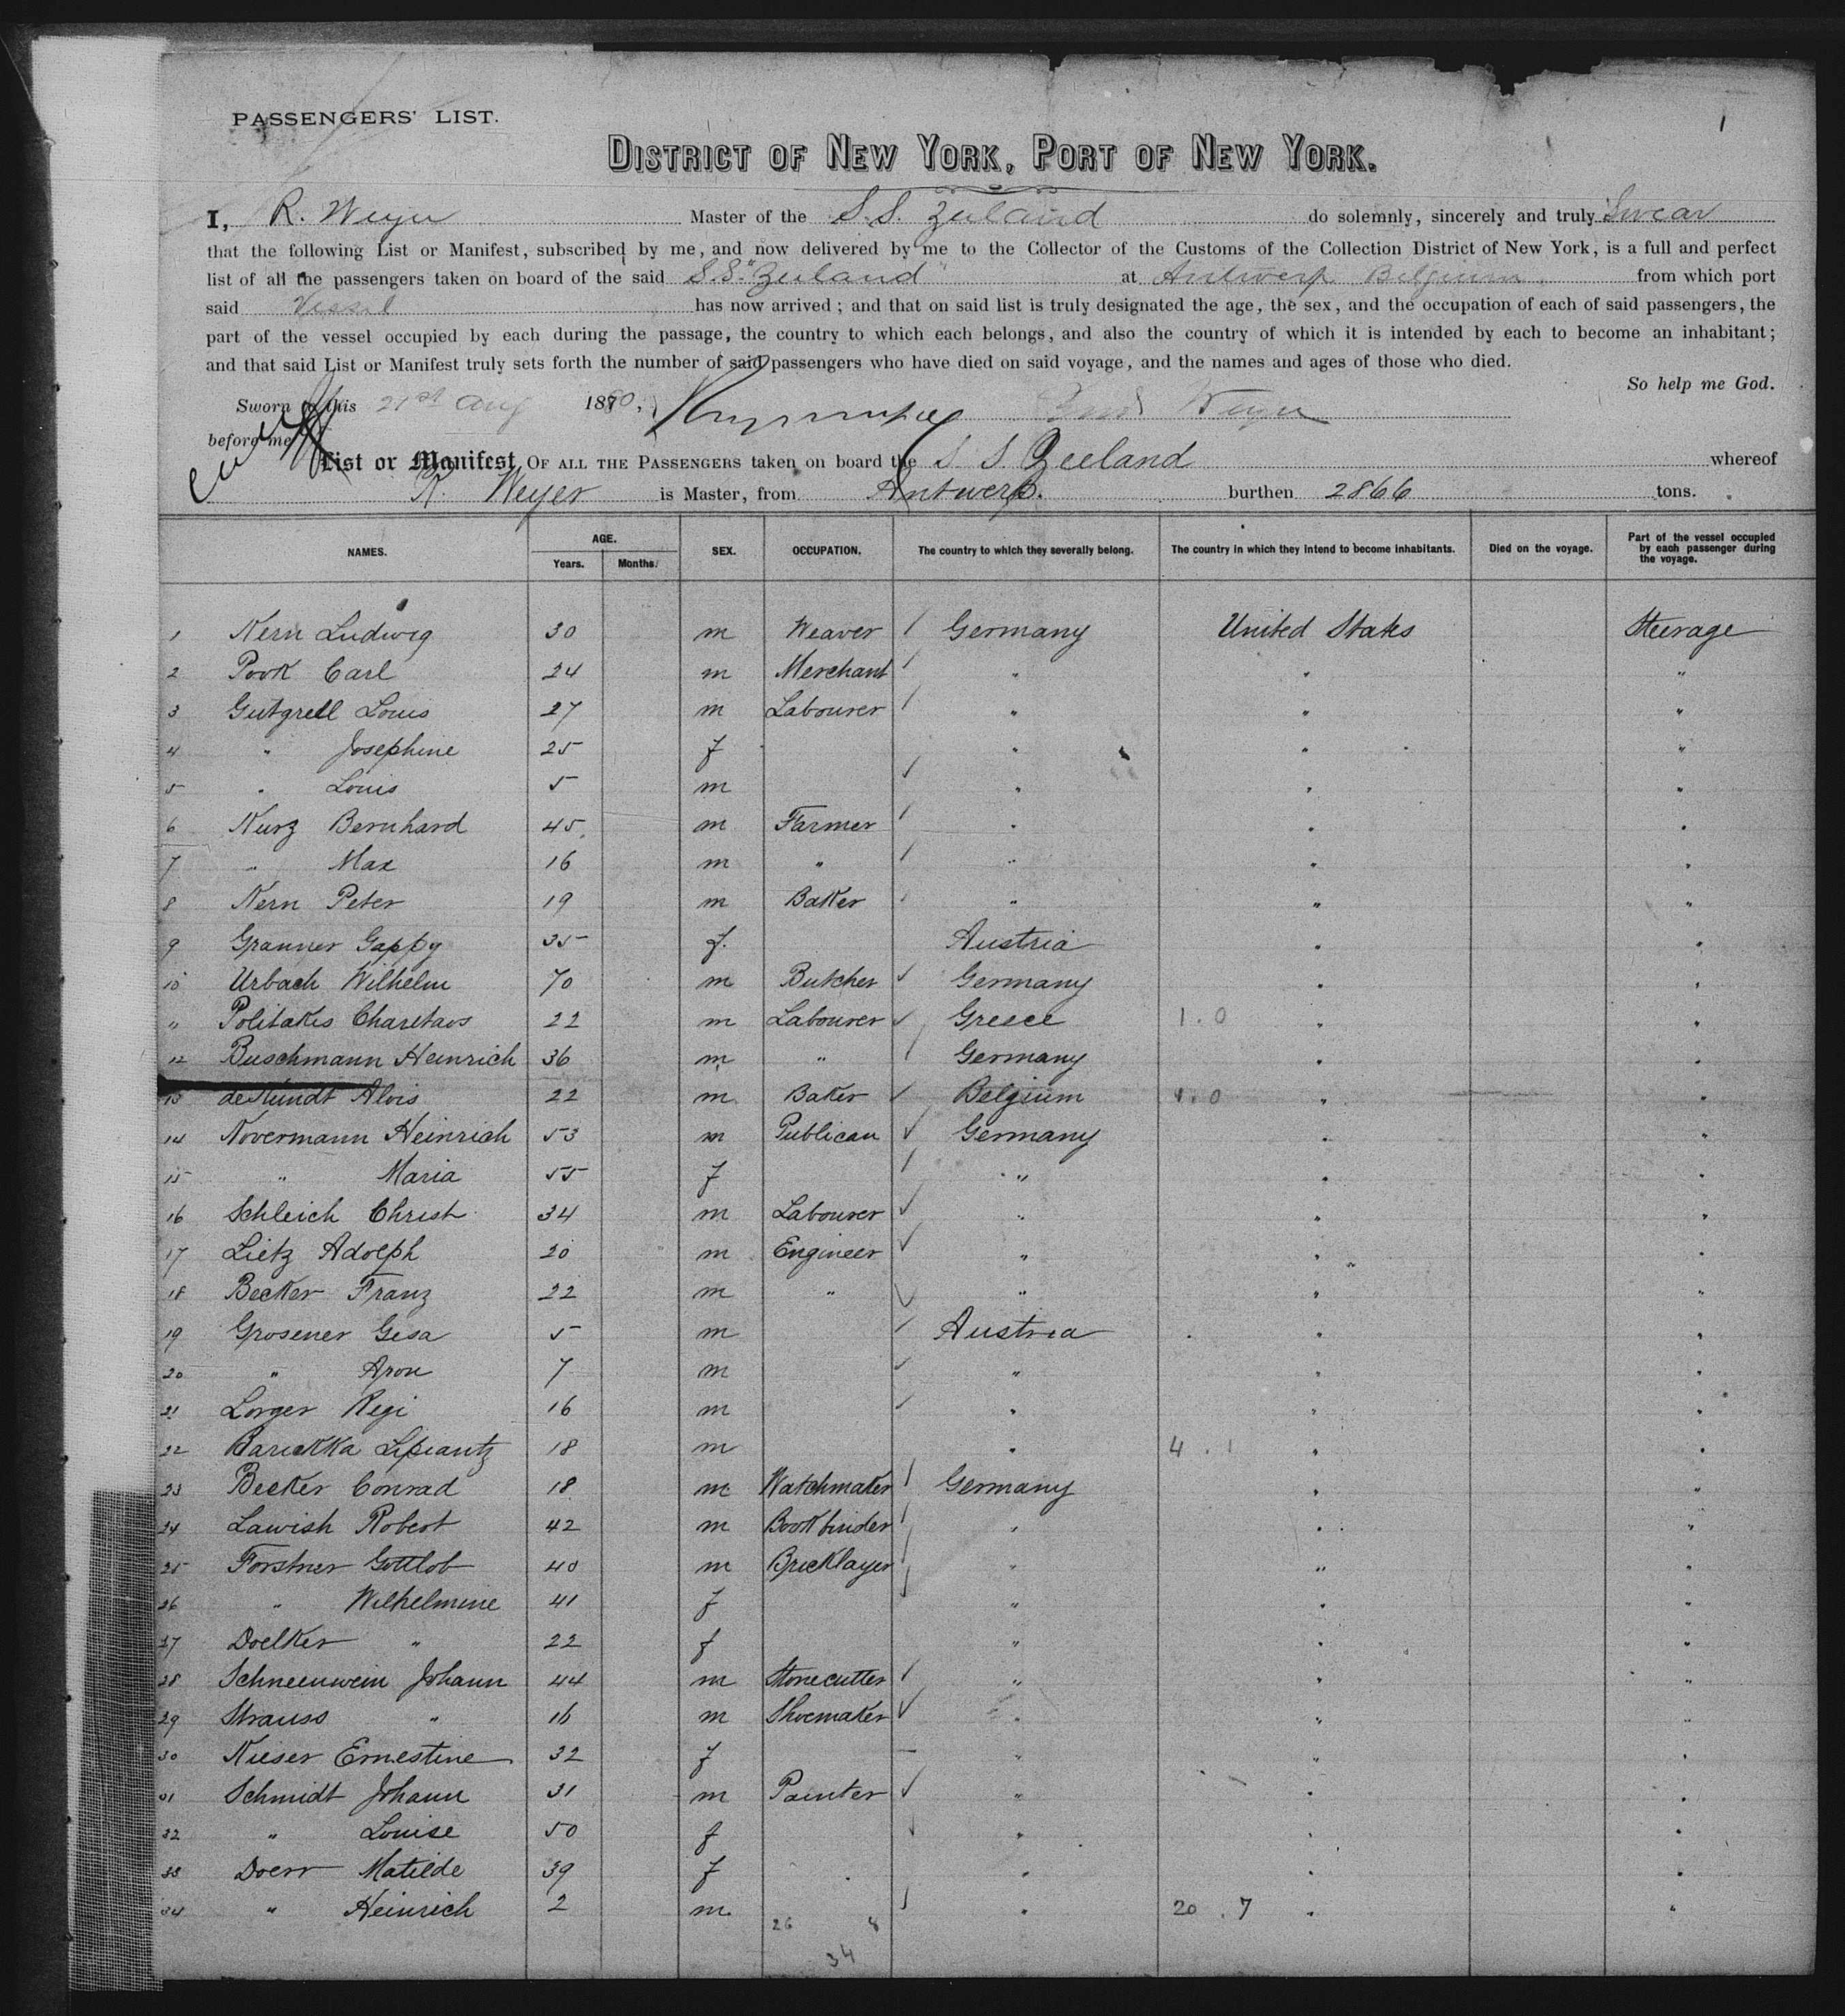 1
PASSENGERS' LIST.
DISTRICT OF NEW YORK, PORT OF NEW YORK.
I, R. Weyer Master of the S.S. Zeeland do solemnly, sincerely and truly Swear
that the following List or Manifest, subscribed by me, and now delivered by me to the Collector of the Customs of the Collection District of New York, is a full and perfect
list of all the passengers taken on board of the said S.S. "Zeeland" at Antwerp Belgium. from which port
said Vessel has now arrived; and that on said list is truly designated the age, the sex, and the occupation of each of said passengers, the
part of the vessel occupied by each during the passage, the country to which each belongs, and also the country of which it is intended by each to become an inhabitant;
and that said List or Manifest truly sets forth the number of said passengers who have died on said voyage, and the names and ages of those who died.
So help me God.
Sworn to this 21st Aug 1880, Weyer
before me
List or Manifest OF ALL THE PASSENGERS taken on board the S S Zeeland whereof
R. Weyer is Master, from Antwerp. burthen 2866 tons.
NAMES. AGE. Years. Months. SEX. OCCUPATION. The country to which they severally belong. The country in which they intend to become inhabitants. Died on the voyage. Part of the vessel occupied by each passenger during the voyage.
1 Kern Ludwig 30 m Weaver / Germany United States Steerage
2 Pook Carl 24 m Merchant / " " "
3 Gutgrell Louis 27 m Labourer / " " "
4 " Josephine 25 f " " "
5 " Louis 5 m ✓ " " "
6 Kurz Bernhard 45 m Farmer / " " "
7 " Max 16 m " / " " "
8 Kern Peter 19 m Baker / " " "
9 Granner Gappy 35 f. Austria " "
10 Urbach Wilhelm 70 m Butcher ✓ Germany " "
11 Politakis Charetaos 22 m Labourer ✓ Greece 1.0 " "
12 Buschmann Heinrich 36 m " / Germany " "
13 Alois 22 m Baker ✓ Belgium 1.0 " "
14 Novermann Heinrich 53 m Publican ✓ Germany " "
15 " Maria 55 f / " " "
16 Schleich Christ 34 m Labourer ✓ " " "
17 Lietz Adolph 20 m Engineer ✓ " " "
18 Becker Franz 22 m " ✓ " " "
19 Grosener Gesa 5 m ✓ Austria " "
20 " Aron 7 m ✓ " " "
21 Lorger Regi 16 m ✓ " " "
22 Barickka Lipiantz 18 m " 4.1 " "
23 Becker Conrad 18 m Watchmaker / Germany " "
24 Lawish Robert 42 m Bookbinder / " " "
25 Forstner Gottlob 40 m Bricklayer / " " "
26 " Wilhelmine 41 f / " " "
27 Doelker " 22 f " " "
28 Schneenwein Johann 44 m Stonecutter / " " "
29 Strauss " 16 m Shoemaker ✓ " " "
30 Kieser Ernestine 32 f – " " "
31 Schmidt Johann 31 m Painter ✓ " " "
32 " Louise 50 f ✓ " " "
33 Doerr Matilde 39 f " " "
34 " Heinrich 2 m / " 20.7 " "
26 8
34